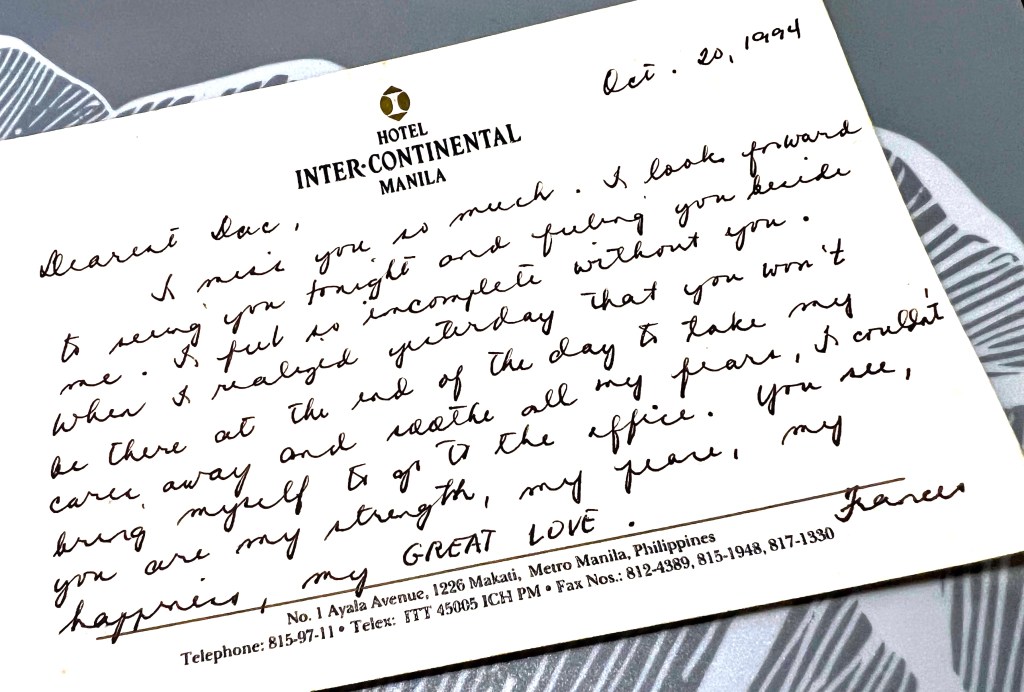 Oct. 20, 1994
HOTEL
INTER·CONTINENTAL
MANILA
Dearest Dac,
I miss you so much. I look forward
to seeing you tonight and feeling you beside
me. I feel so incomplete without you.
When I realized yesterday that you won't
be there at the end of the day to take my
cares away and soothe all my fears, I couldn't
bring myself to go to the office. You see,
you are my strength, my peace, my
happiness, my GREAT LOVE.
Frances
No. 1 Ayala Avenue, 1226 Makati, Metro Manila, Philippines
Telephone: 815-97-11 • Telex: ITT 45005 ICH PM • Fax Nos.: 812-4389, 815-1948, 817-1330